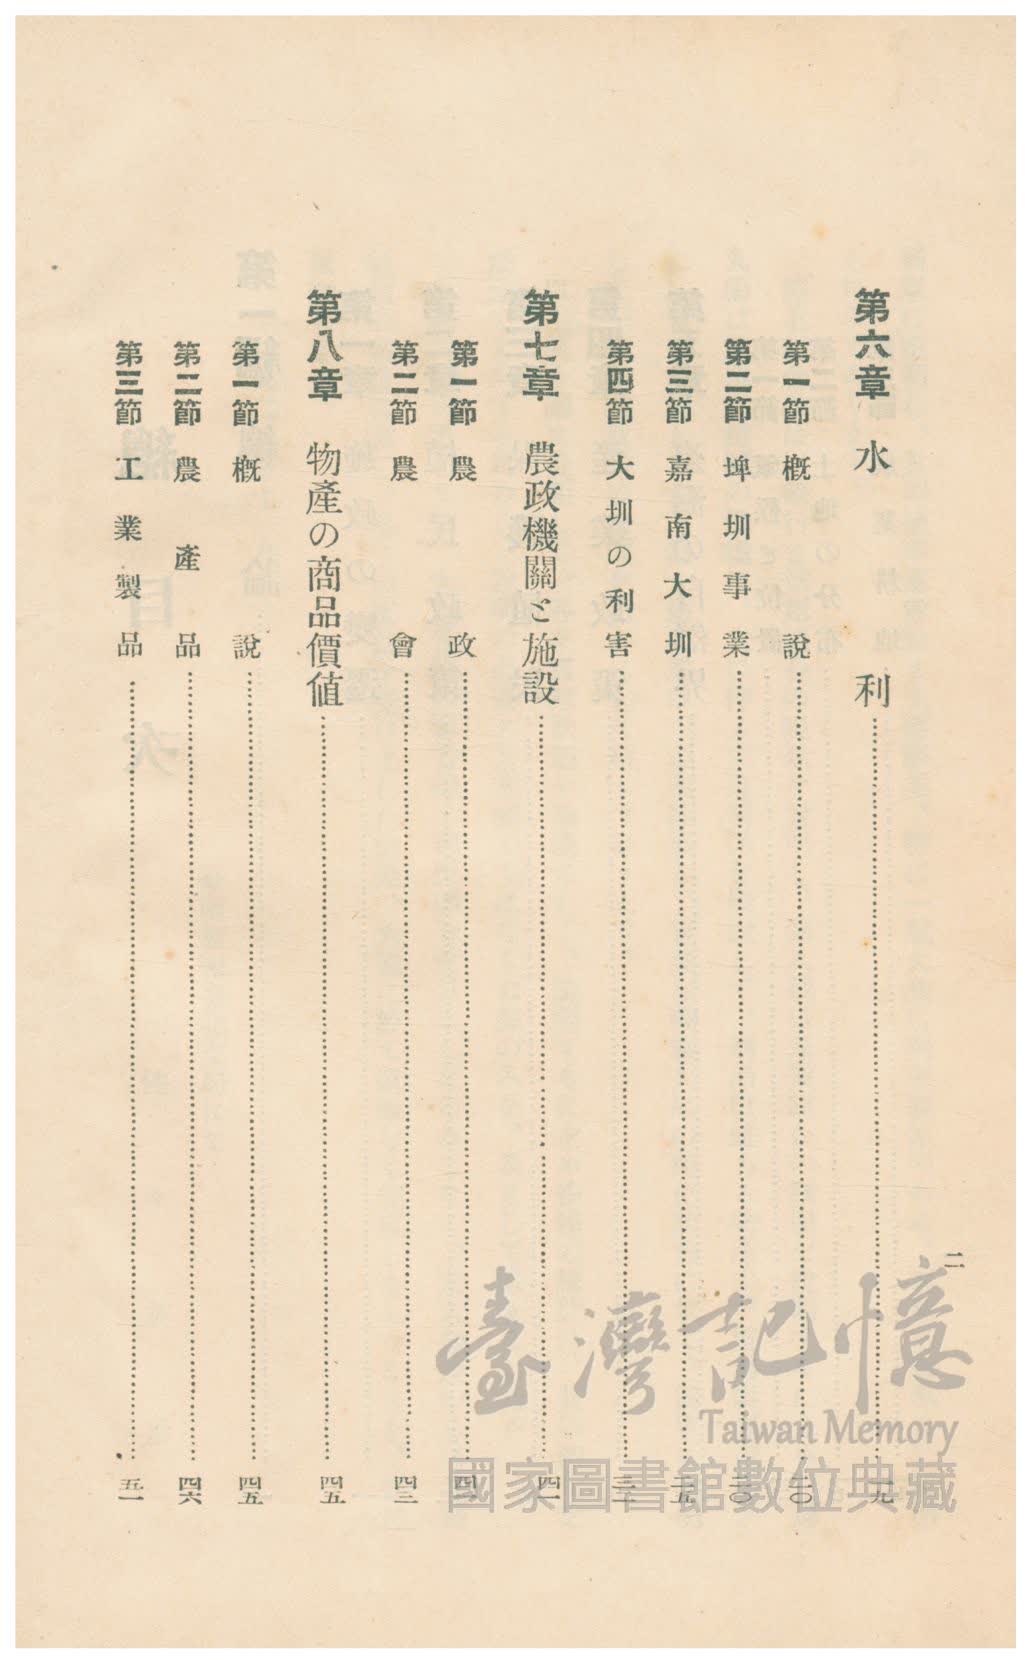 二
第六章 水利 一九
第一節 概說 二〇
第二節 埤圳事業 二〇
第三節 嘉南大圳 二五
第四節 大圳の利害
第七章 農政機關と施設 四一
第一節 農政
第二節 農會 四三
第八章 物產の商品價値 四五
第一節 概說 四五
第二節 農產品 四六
第三節 工業製品 五一
臺灣記憶
Taiwan Memory
國家圖書館數位典藏